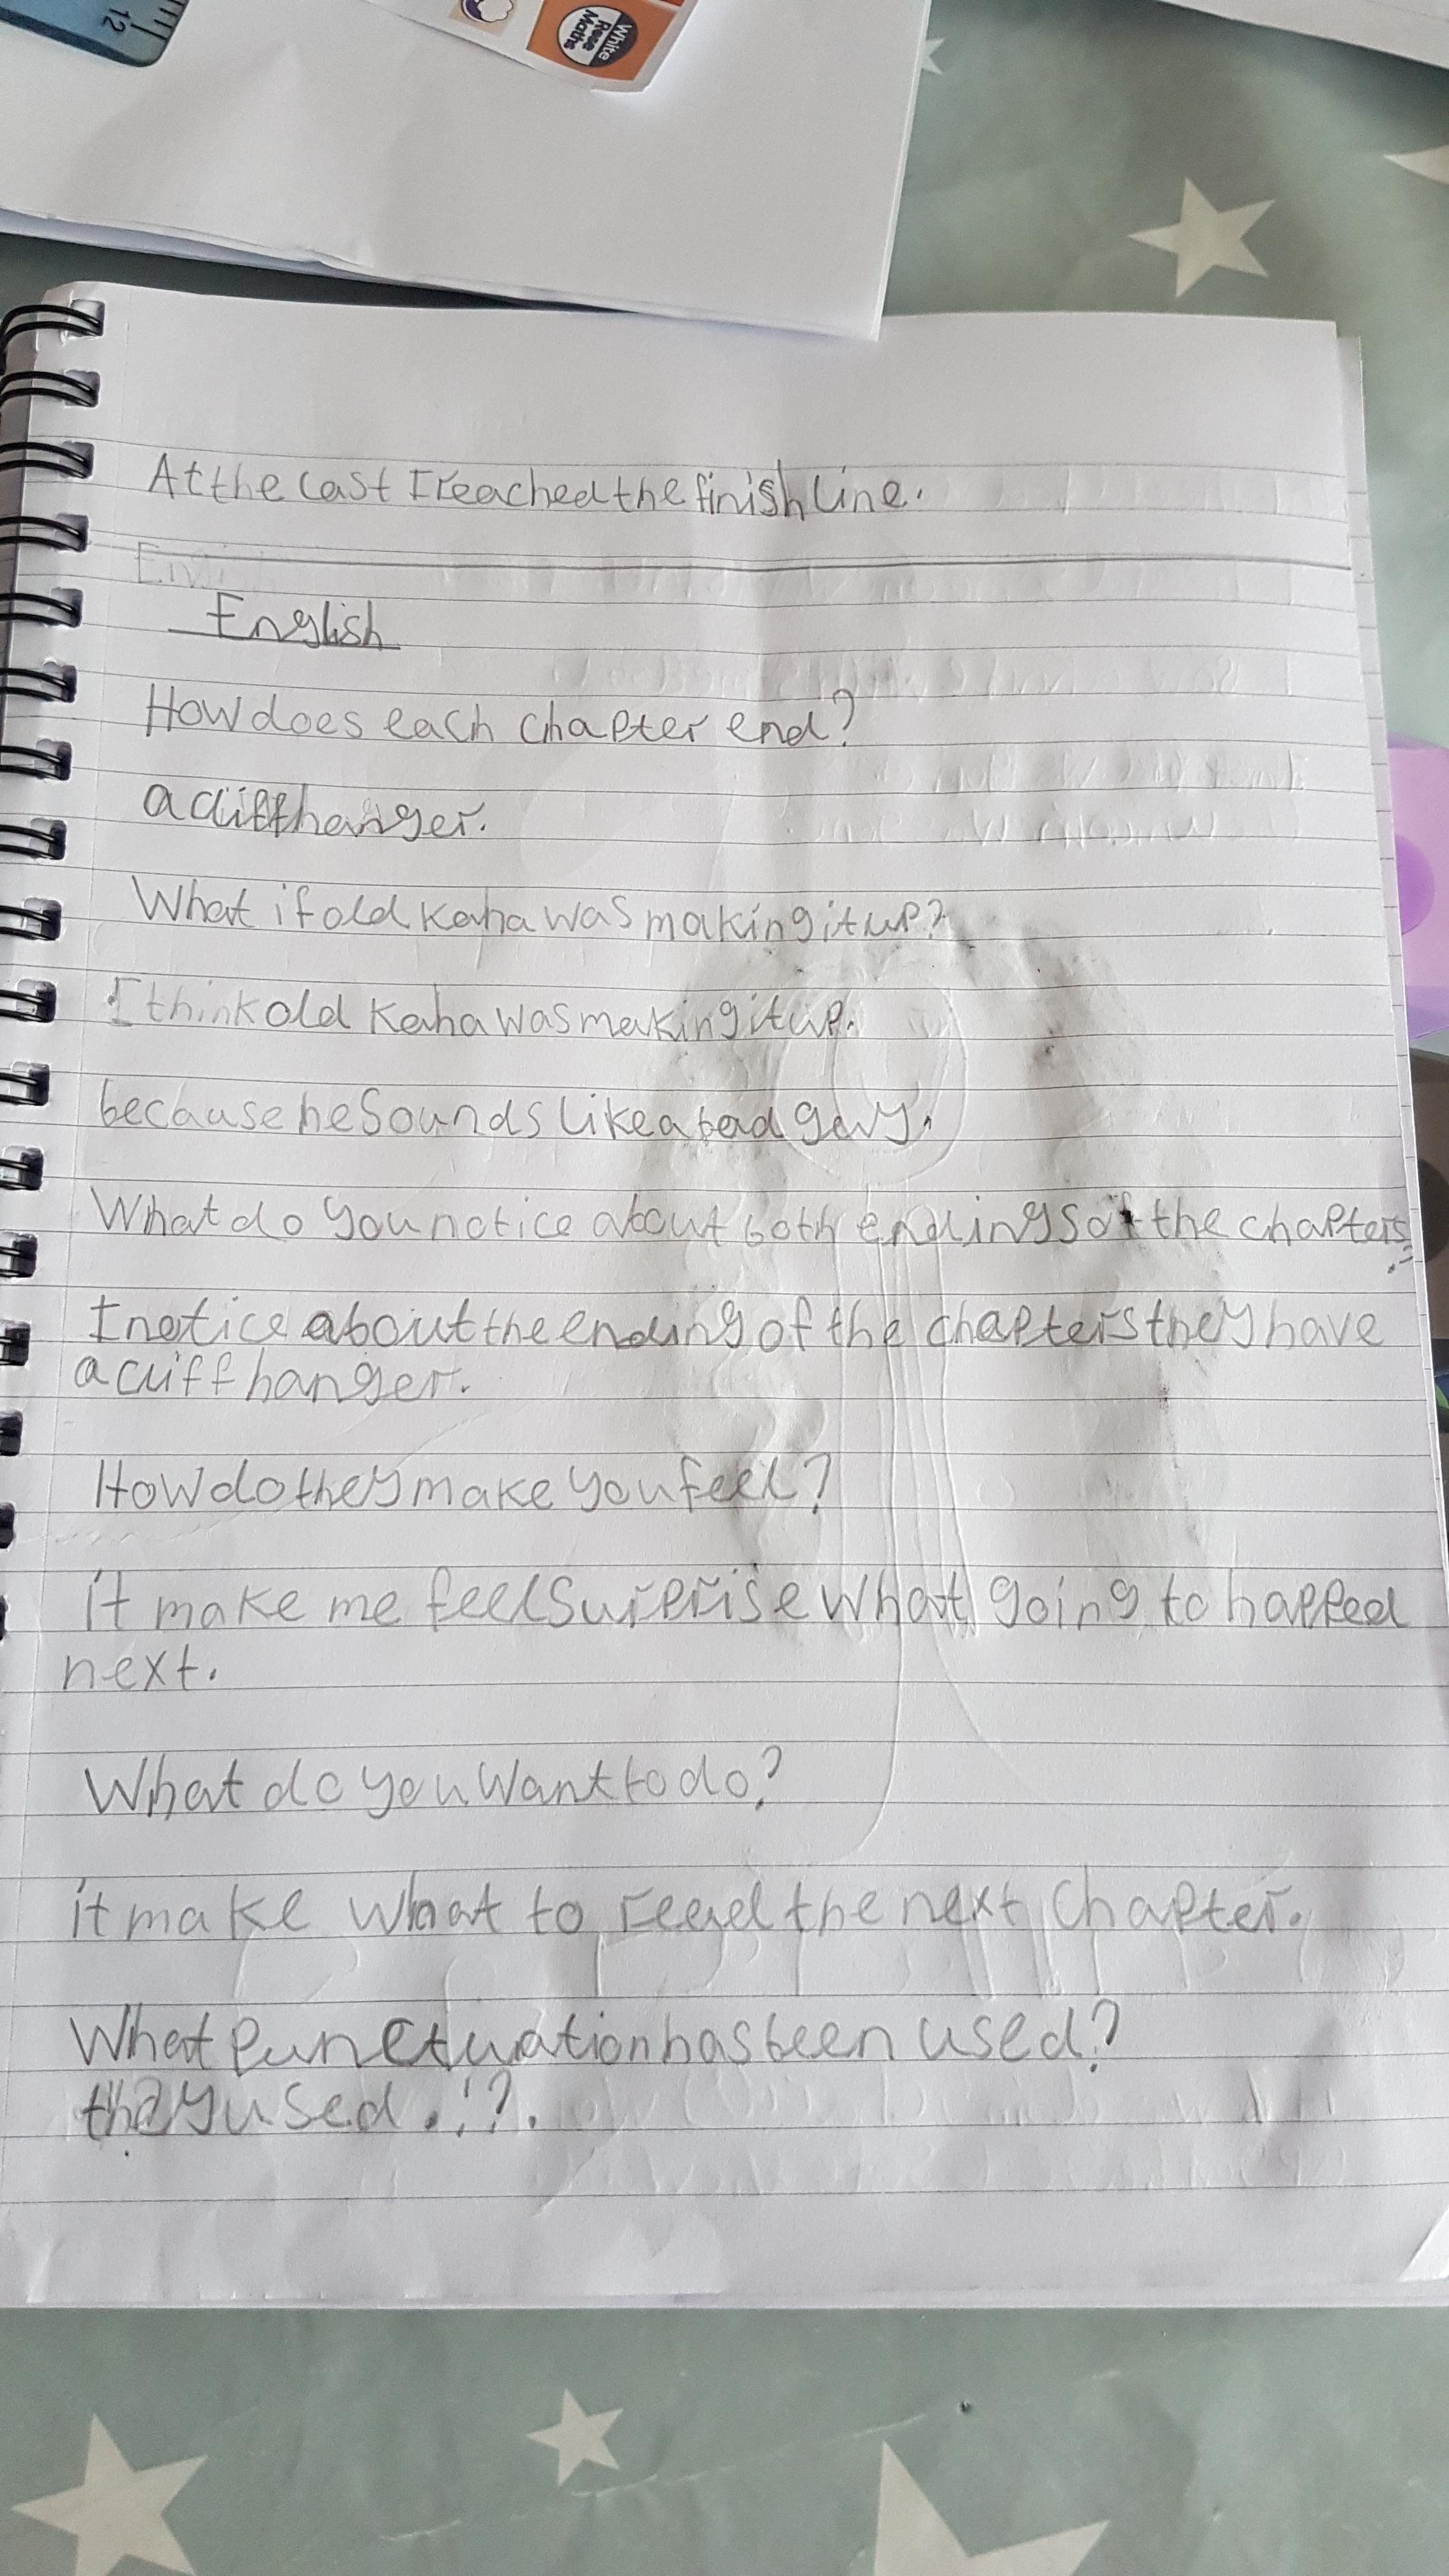 12
White
Rose
Maths
At the last I reached the finish line.
English
How does each chapter end?
a cliffhanger.
What if old Kaha was making it up?
I think old Kaha was making it up.
because he sounds like a bad guy.
What do you notice about both endings of the chapters?
I notice about the ending of the chapters they have
a cliff hanger.
How do they make you feel?
it make me feel surprise what going to happed
next.
What do you want to do?
it make whant to read the next chapter.
What punctuation has been used?
they used . ! ? .